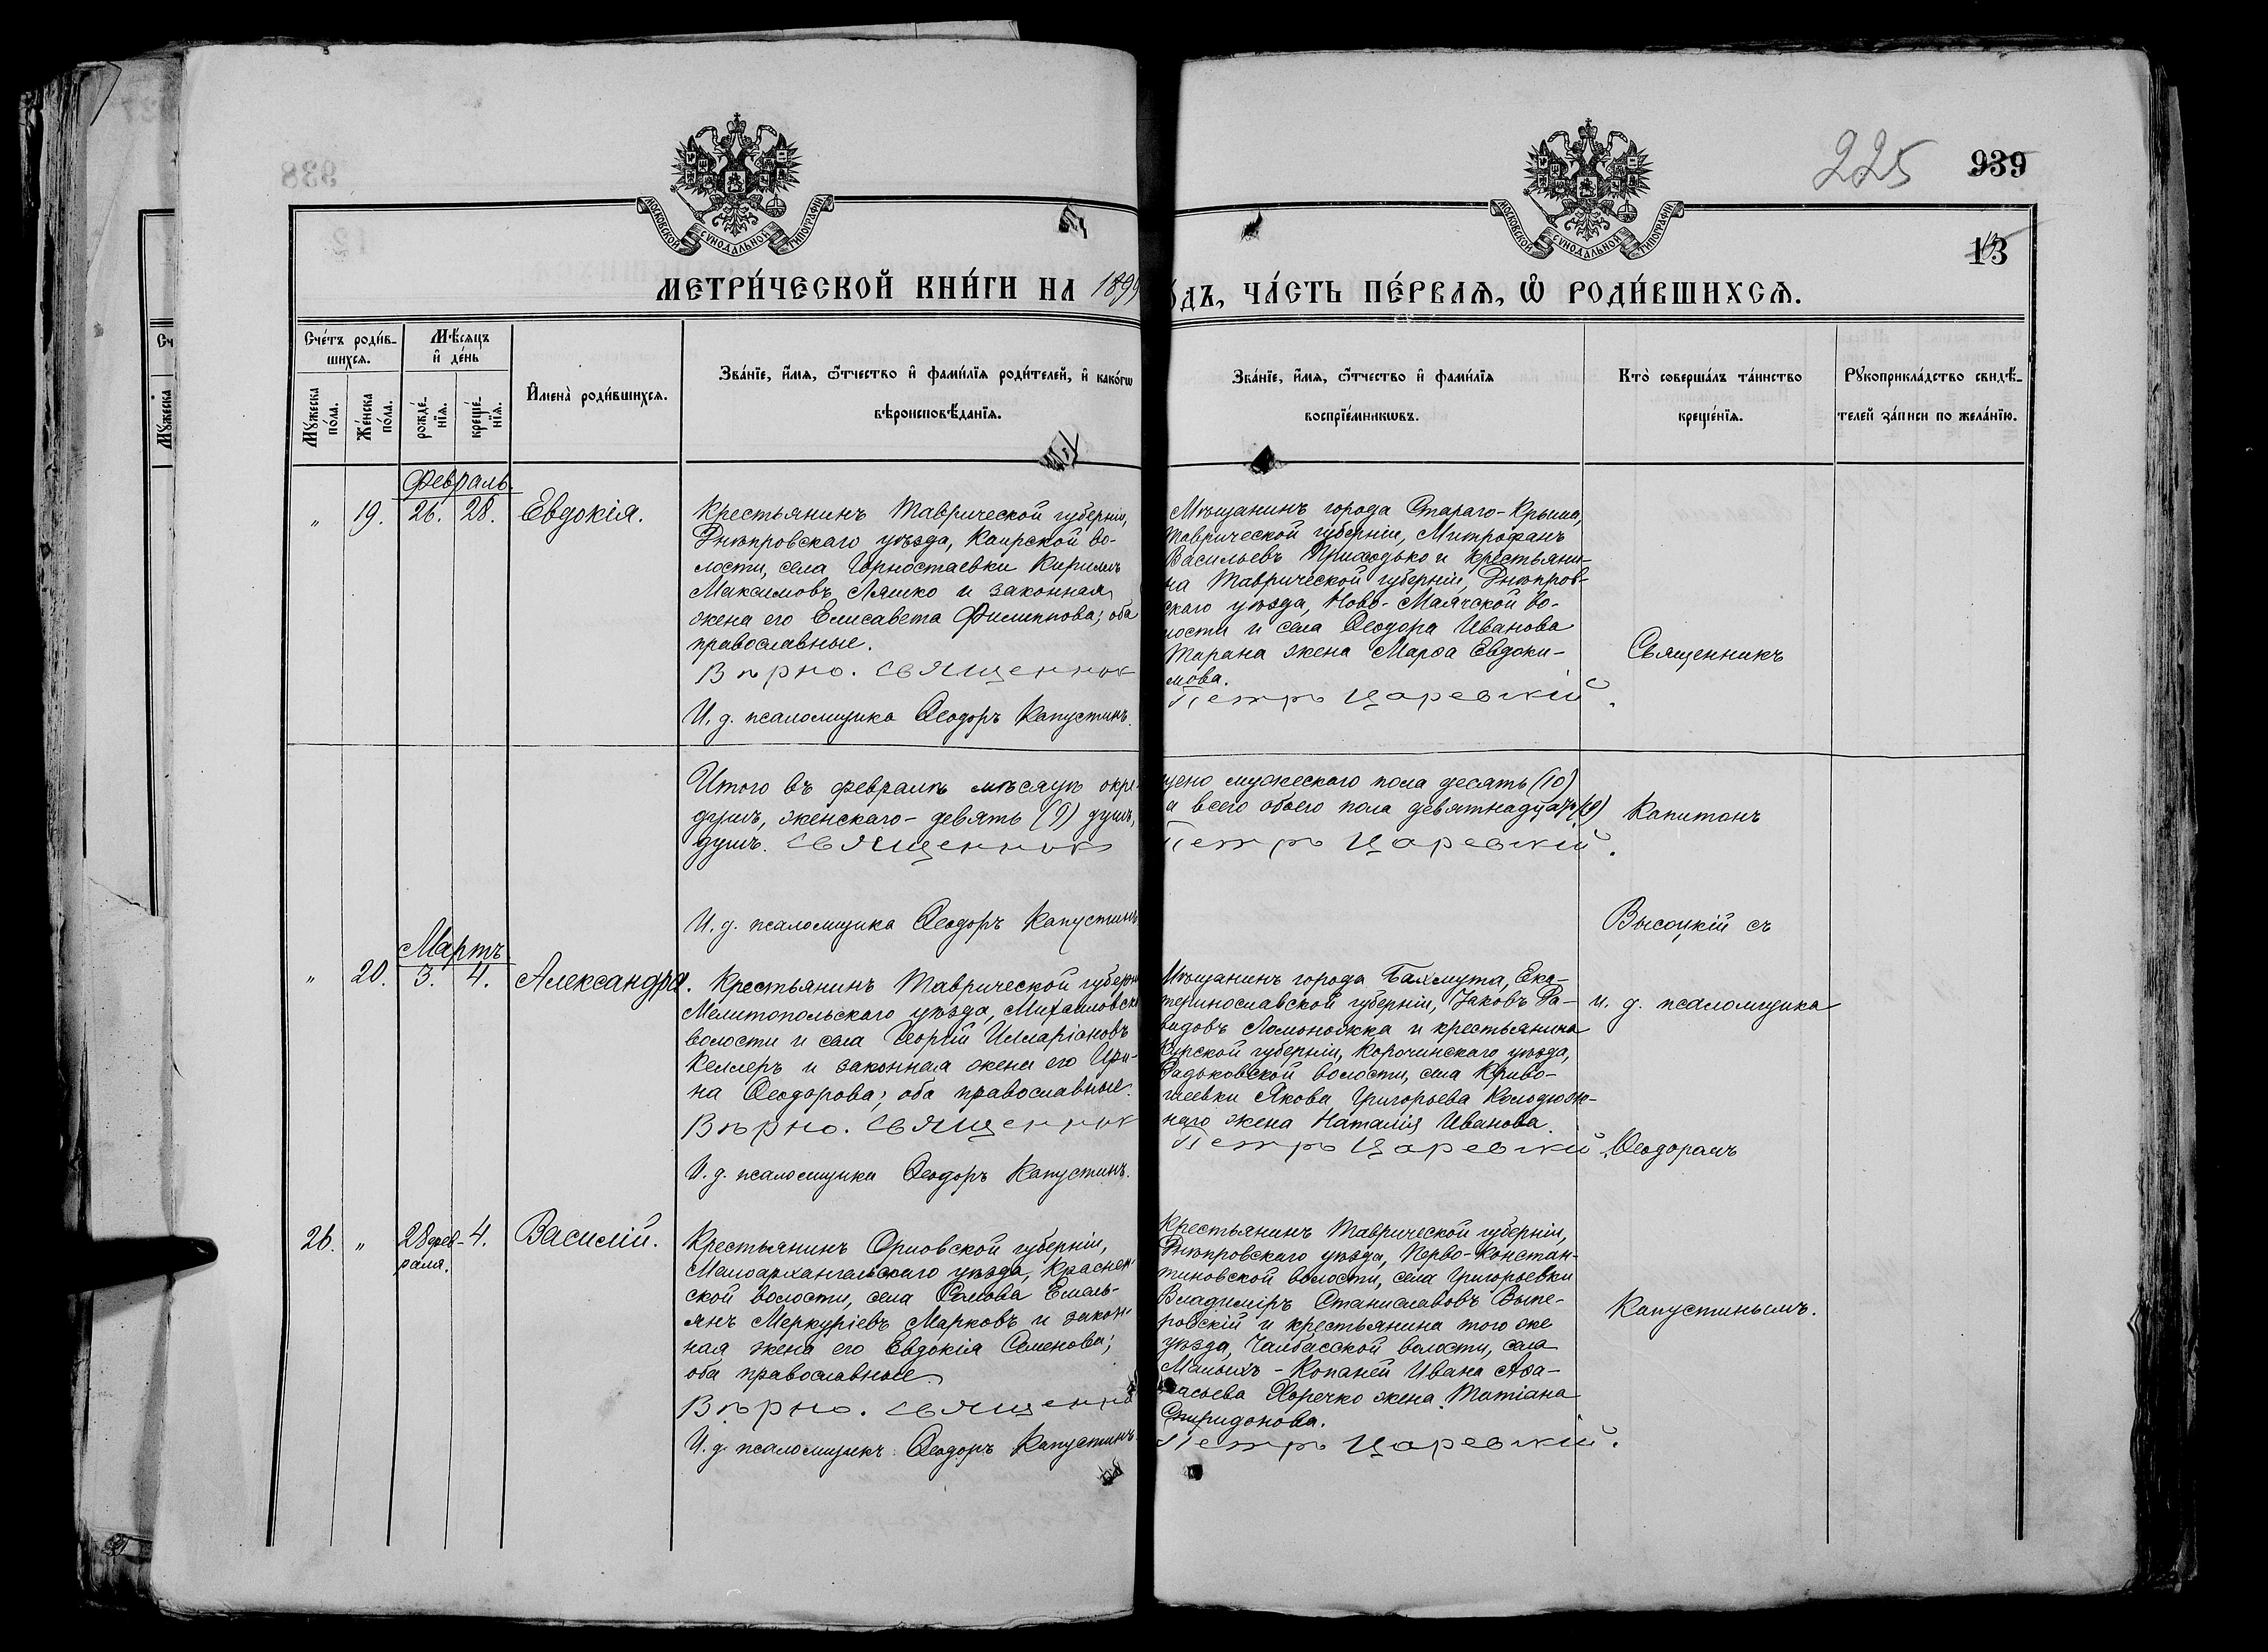 938
225 939
13
МОСКОВСКОЙ СѴНОДАЛЬНОЙ ТИПОГРАФІИ
МОСКОВСКОЙ СѴНОДАЛЬНОЙ ТИПОГРАФІИ
МЕТРИ́ЧЕСКОЙ КНИ́ГИ НА 1899
о́дъ, ЧА́СТЬ ПЕ́РВАѦ, Ѡ҆ РОДИ́ВШИХСѦ.
Сче́тъ роди́в-
шихсѧ.
Мꙋ́жеска по́ла.
Же́нска по́ла.
Мѣ́сѧцъ
и҆ де́нь
рожде́-
нїѧ.
креще́-
нїѧ.
И҆мена̀ роди́вшихсѧ.
Зва́нїе, и҆́мѧ, ѻ҆́тчество и҆ фами́лїѧ роди́телей, и҆ како́гѡ
вѣроисповѣ́данїѧ.
Зва́нїе, и҆́мѧ, ѻ҆́тчество и҆ фами́лїѧ
воспрїе́мникѡвъ.
Кто̀ соверша́лъ та́инство
креще́нїѧ.
Рꙋкоприкла́дство свидѣ́-
телей за́писи по жела́нїю.
Февраль.
" 19. 26. 28. Евдокія.
Крестьянинъ Таврической губерніи,
Днѣпровскаго уѣзда, Каирской во-
лости, села Горностаевки Кириллъ
Максимовъ Ляшко и законная
жена его Елисавета Филиппова; оба
православные.
Вѣрно. Священник
И. д. псаломщика Ѳеодоръ Капустинъ.
Мѣщанинъ города Стараго-Крыма,
Таврической губерніи, Митрофанъ
Васильевъ Приходько и крестьяни-
на Таврической губерніи, Днѣпров-
скаго уѣзда, Ново-Маячской во-
лости и села Ѳеодора Иванова
Тарана жена Марѳа Евдоки-
мова.
Петръ Царевскій.
Священникъ
Итого въ февралѣ мѣсяцѣ окре-
душъ, женскаго - девять (9) душъ,
душъ. Священникъ
И. д. псаломщика Ѳеодоръ Капустинъ
щено мужескаго пола десять (10)
а всего обоего пола девятнадцать (19)
Петръ Царевскій.
Капитонъ
Высоцкій съ
Мартъ
" 20. 3. 4. Александра.
Крестьянинъ Таврической губерн
Мелитопольскаго уѣзда, Михайловск
волости и села Георгій Илларіоновъ
Келлеръ и законная жена его Ири-
на Ѳеодорова; оба православные.
Вѣрно. Священник
И. д. псаломщика Ѳеодоръ Капустинъ.
Мѣщанинъ города Бахмута, Ека-
теринославской губерніи, Іаковъ Да-
видовъ Ломоножка и крестьянина
Курской губерніи, Корочинскаго уѣзда,
Радьковской волости, села Криво-
шеевки Якова Григорьева Колодяж-
наго жена Наталія Иванова.
Петръ Царевскій.
и. д. псаломщика
Ѳеодоромъ
26. " 28 фев- 4. Василій.
раля.
Крестьянинъ Орловской губерніи,
Малоархангельскаго уѣзда, Краснен-
ской волости, села Емель-
янъ Меркуріевъ Марковъ и закон-
ная жена его Евдокія Семенова;
оба православные.
Вѣрно. Священни
И. д. псаломщикъ Ѳеодоръ Капустинъ
Крестьянинъ Таврической губерніи,
Днѣпровскаго уѣзда, Перво-Констан-
тиновской волости, села Григорьевки
Владиміръ Станиславовъ
ровскій и крестьянина того же
уѣзда, Чалбасской волости, села
Малыхъ-Копаней Ивана Аѳа-
насьева Харечко жена Татіана
Спиридонова.
Петръ Царевскій.
Капустинымъ.